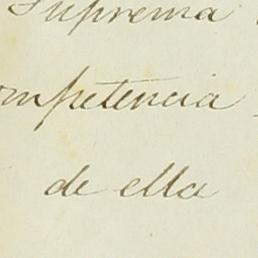 Suprema
ompetencia
de ella